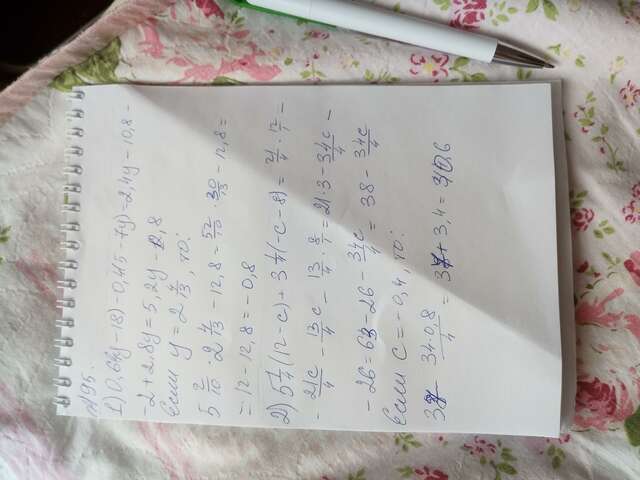 №95.
1) 0,6(4y-18)-0,4(5-7y)=2,4y-10,8-
-2+2,8y=5,2y-12,8
Если y=2 4/13, то:
5 2/10 · 2 4/13 - 12,8 = 52/10 · 30/13 - 12,8 =
=12-12,8=-0,8
2) 5 1/4 (12-c)+3 1/4 (-c-8) = 21/4 · 12/1 -
- 21c/4 - 13c/4 - 13/4 · 8/1 = 21·3 - 34c/4 -
-26=63-26- 34c/4 = 38 - 34c/4
Если c=-0,4, то: